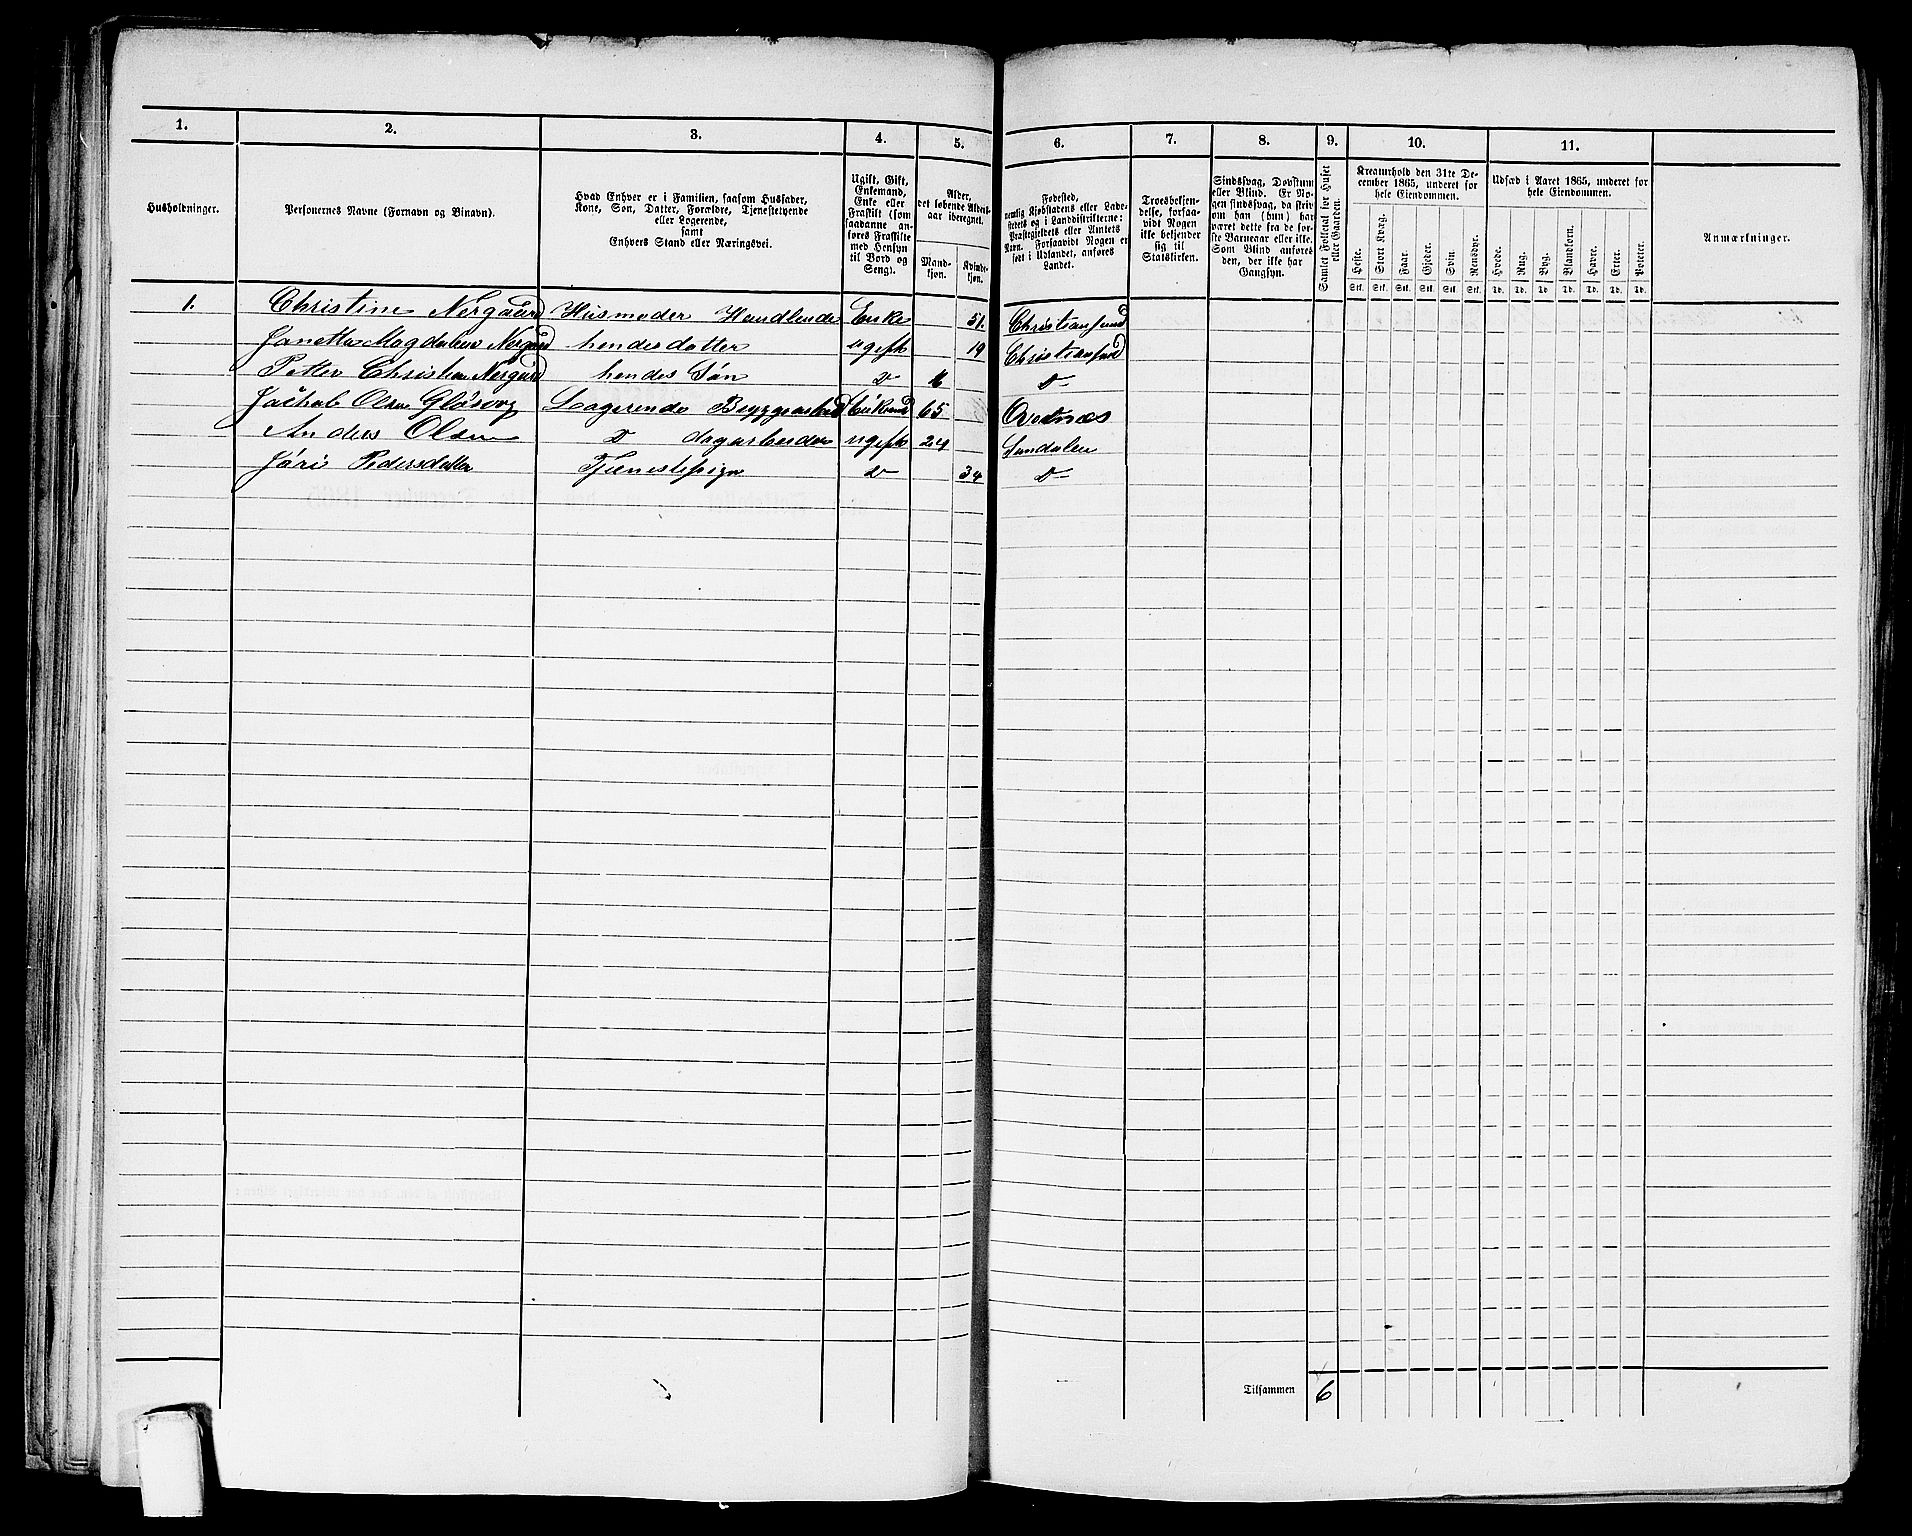 1. 2. 3. 4. 5. 6. 7. 8. 9. 10. 11.
Husholdninger.
Personernes Navne (Fornavn og Binavn).
Hvad Enhver er i Familien, saasom Husfader,
Kone, Søn, Datter, Forældre, Tjenestetyende
eller Logerende,
samt
Enhvers Stand eller Næringsvei.
Ugift, Gift,
Enkemand,
Enke eller
Fraskilt (som
saadanne an-
føres Fraskilte
med Hensyn
til Bord og
Seng).
Alder,
det løbende Alders-
aar iberegnet.
Mand-
kjøn.
Kvinde-
kjøn.
Fødested,
nemlig Kjøbstadens eller Lade-
stedets og i Landdistrikterne:
Præstegjeldets eller Amtets
Navn. Forsaavidt Nogen er
født i Udlandet, anføres
Landet.
Troesbekjen-
delse, forsaa-
vidt Nogen
ikke bekjender
sig til
Statskirken.
Sindssvag, Døvstum
eller Blind. Er No-
gen sindssvag, da skriv
om han (hun) har
været dette fra de før-
ste Barneaar eller ikke.
Som Blind anføres
den, der ikke har
Gangsyn.
Samlet Folketal for Huset
eller Gaarden.
Kreaturhold den 31te De-
cember 1865, underet for
hele Eiendommen.
Heste. Stort Kvæg. Faar. Gjeder. Svin. Rensdyr.
Stk. Stk. Stk. Stk. Stk. Stk.
Udsæd i Aaret 1865, underet for
hele Eiendommen.
Hvede. Rug. Byg. Blandkorn. Havre. Erter. Poteter.
Td. Td. Td. Td. Td. Td. Td.
Anmærkninger.
1. Christine Nergaard Husmoder Handlende Enke 51. Christiansund
Janetta Magdalena Nergård hendes datter ugift 19 Christiansund
Petter Christian Nergård hendes Søn D D
Jachob Olsen Logerende 65
Anders Olsen D dagarbeider ugift 24 Sundalen
Jóri Pedersdatter Tjenestepige D 34 D
Tilsammen 6